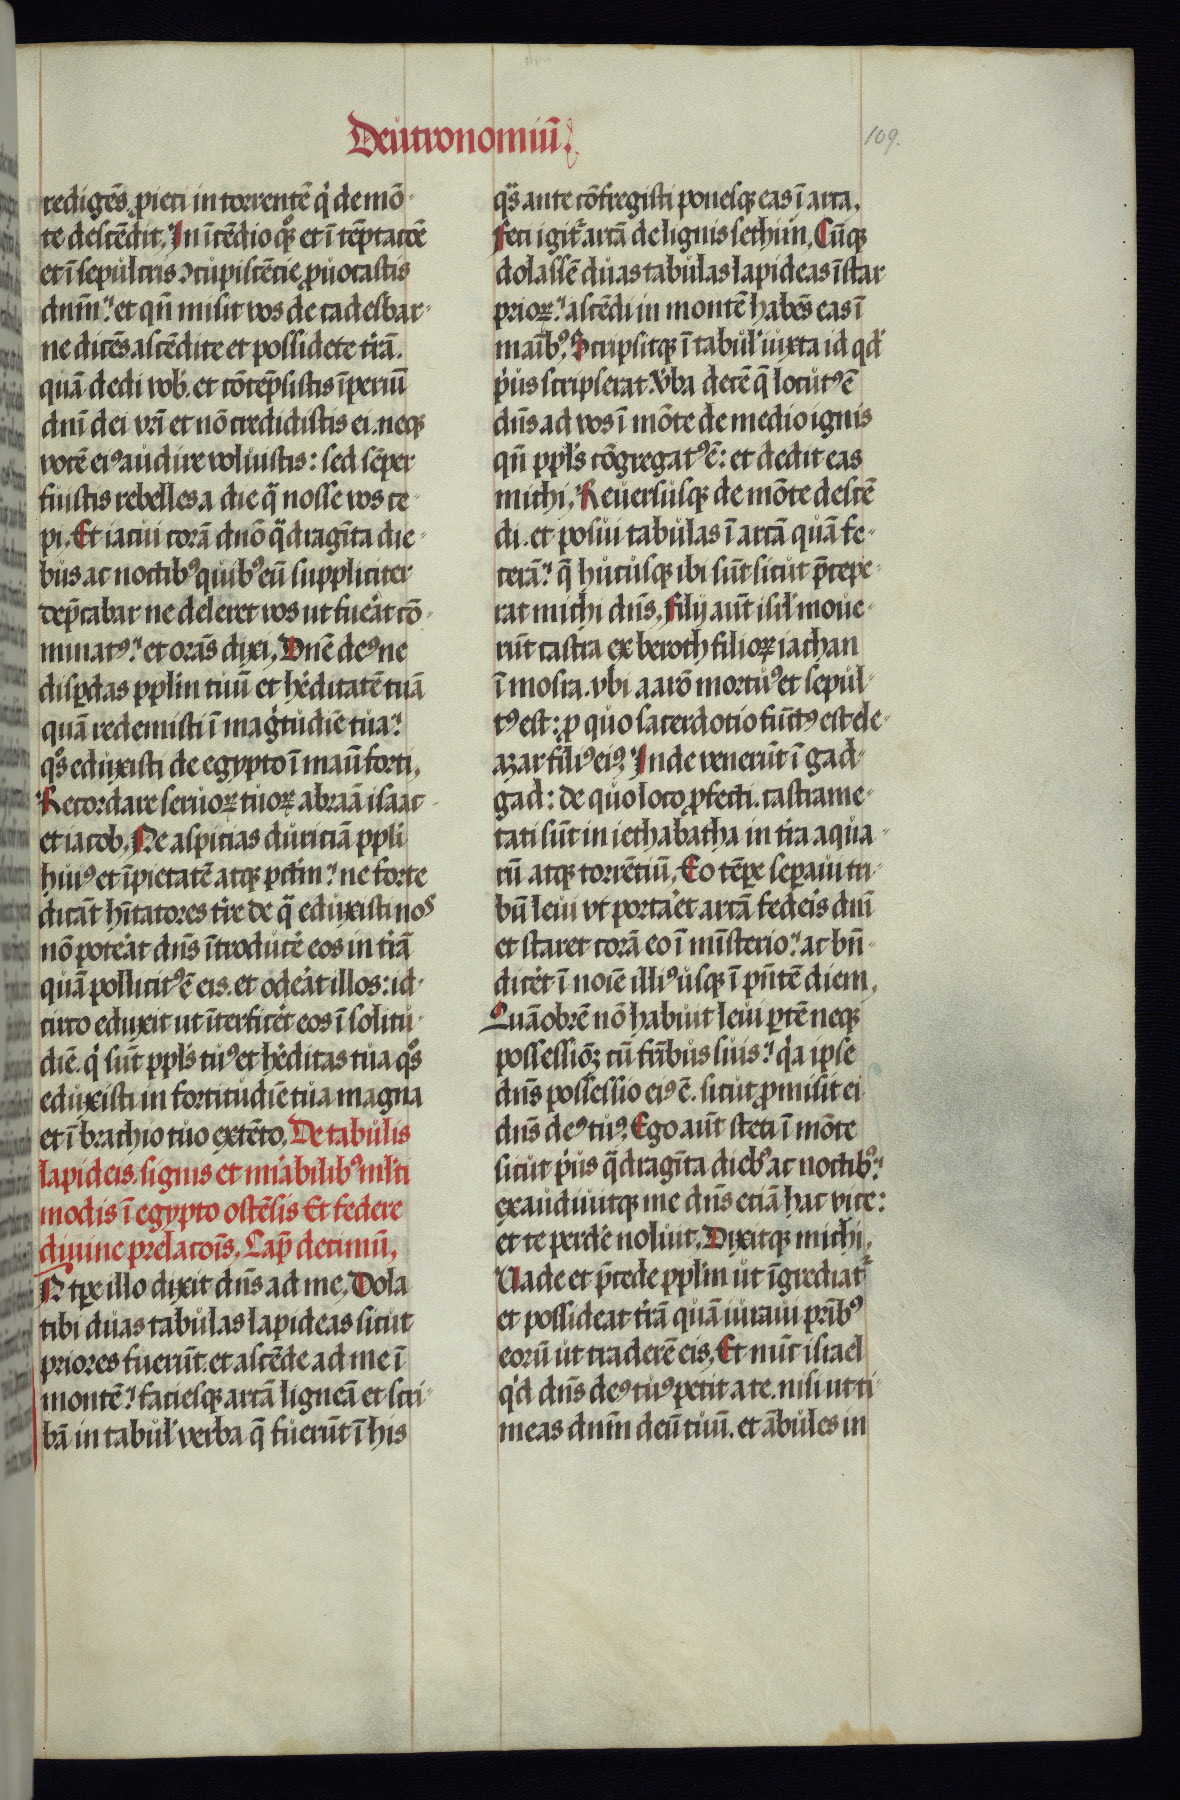 Deutronomiū.
109.
redigēs ꝓieci in torrentē q̇ de mō-
te descēdit, In ī̄cēdio q̊qꝫ et ī tēptatōe
et ī sepulcris ↄcupiscēcie ꝓuocastis
dnm̄. et qn̄ misit vos de cadesbar-
ne dicēs ascēdite et possidete t̄rā.
quā dedi vob̓. et cōtēpsistis īperiū
dn̄i dei vr̄i et nō credidistis ei. neqꝫ
vocē eiꝰ audire voluistis: sed sēper
fuistis rebelles a die q̄ nosse vos ce-
pi. Et iacui corā dn̄o q̈dragīta die-
bus ac noctibꝰ quibꝰ eū suppliciter
dep̄cabar ne deleret vos ut fue᷑at cō-
minatꝰ. et orās dixi, Dn̄e deꝰ ne
disꝑdas pplm̄ tuū et he᷑ditatē tuā
quā redemisti ī mag̓tudīe tua.
q̊s eduxisti de egypto ī manū forti,
Recordare seruoꝝ tuoꝝ abraā isaac
et iacob. Ne aspicias duriciā ppli
huiꝰ et īpietatē atqꝫ pctm̄. ne forte
dicāt hītatores t̄re de q̄ eduxisti nos
nō pote᷑at dn̄s ītroduce᷑ eos in t̄rā
quā pollicitꝰ ē eis. et ode᷑at illos: id-
circo eduxit ut īterfice᷑t eos ī solitu-
dīe. q̇ sūt ppl̓s tuꝰ et he᷑ditas tua q̊s
eduxisti in fortitudīe tua magna
et ī brachio tuo extēto, De tabulis
lapideis. signis et mi᷑abilibꝰ ml̓ti
modis ī egypto ostēsis Et federe
diuine prelatoīs. Cap̄ decimū,
N tꝑe illo dixit dn̄s ad me. Dola
tibi duas tabulas lapideas sicut
priores fuerūt. et ascēde ad me ī
montē. faciesqꝫ arcā ligneā et scri-
bā in tabul̓ verba q̄ fuerūt ī his
q̈s ante cōfregisti ponesqꝫ eas ī arca,
Feci igit᷑ arcā de lignis sethim, Cūqꝫ
dolassē duas tabulas lapideas īstar
prioꝝ. ascēdi in montē habēs eas ī
manībꝰ, Scripsitqꝫ ī tabul̓ iuxta id qd̓
p̓us scripserat. v̓ba decē q̄ locutꝰ ē
dn̄s ad vos ī mōte de medio ignis
qn̄ ppl̓s cōgregatꝰ ē: et dedit eas
michi, Reuersusqꝫ de mōte descē
di. et posui tabulas ī arcā quā fe-
cerā. q̄ hucusqꝫ ibi sūt sicut p̄cepe-
rat michi dn̄s, Filij aūt isr̓l moue-
rūt castra ex beroth filioꝝ iachan
ī mosra. vbi aarō mortuꝰ et sepul-
tꝰ est: ꝓ quo sacerdotio fūctꝰ est ele-
azar filiꝰ eiꝰ. Inde venerūt ī gad-
gad: de quo loco ꝓfecti. castrame-
tati sūt in iethabatha in t̄ra aqua-
rū atqꝫ torrētiū, Eo tēꝑe seꝑaui tri-
bū leui vt porta᷑et arcā federis dn̄i
et staret corā eo ī mīsterio. ac bn̄-
dice᷑t ī noīe illiꝰ usqꝫ ī pn̄tē diem,
Quāobrē nō habuit leui ꝑtē neqꝫ
possessiōꝫ cū fr̄ibus suis. q̇a ipse
dn̄s possessio eiꝰ ē. sicut ꝓmisit ei
dn̄s deꝰ tuꝰ, Ego aūt steti ī mōte
sicut p̓us q̈dragīta diebꝰ ac noctibꝰ.
exaudiuitqꝫ me dn̄s eciā hac vice:
et te perde᷑ noluit. Dixitqꝫ michi,
Uade et p̄cede pplm̄ ut īgrediat᷑
et possideat t̄rā quā iuraui pr̄ibꝰ
eorū ut traderē eis, Et nūc israel
q̇d dn̄s deꝰ tuꝰ petit a te. nisi ut ti-
meas dnm̄ deū tuū. et ābules in